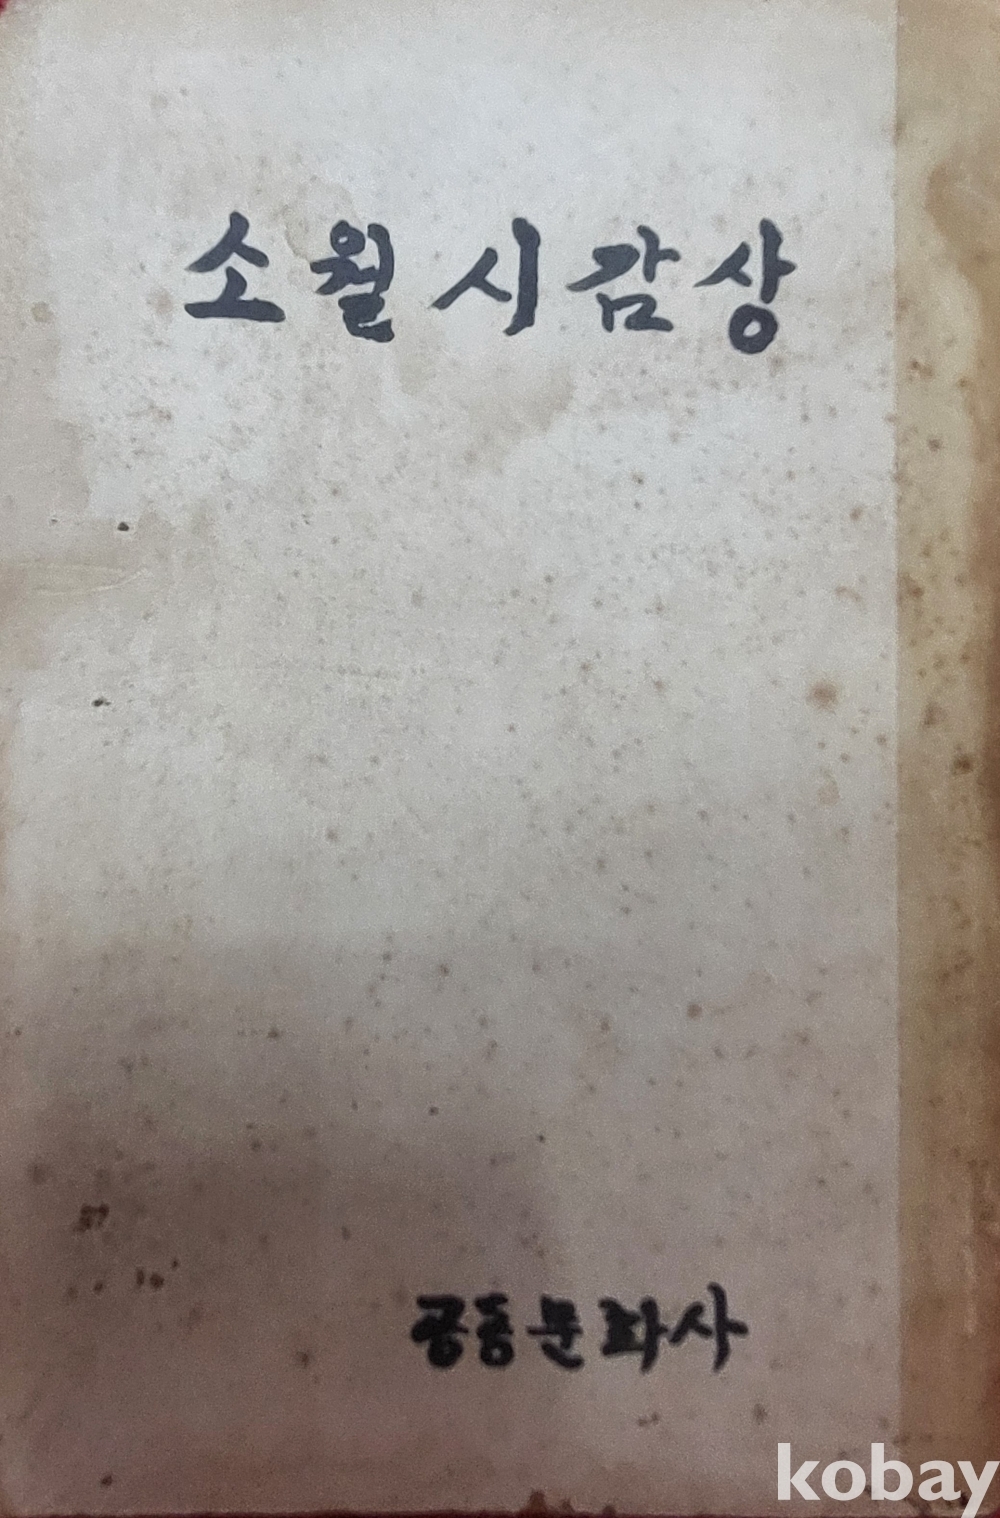 소월시감상
공동문화사
kobay